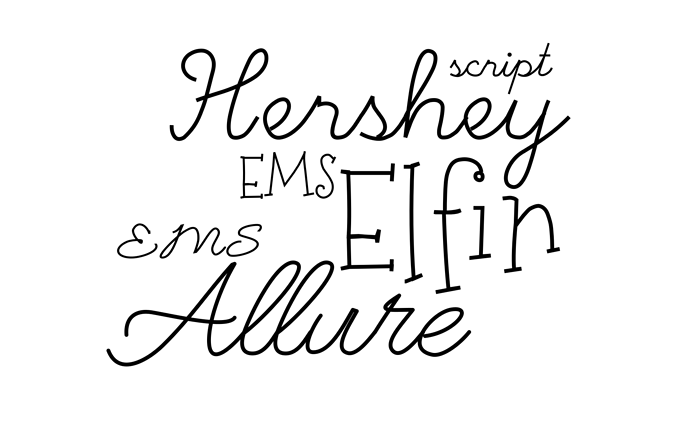 Hershey script
EMS Elfin
EMS
Allure